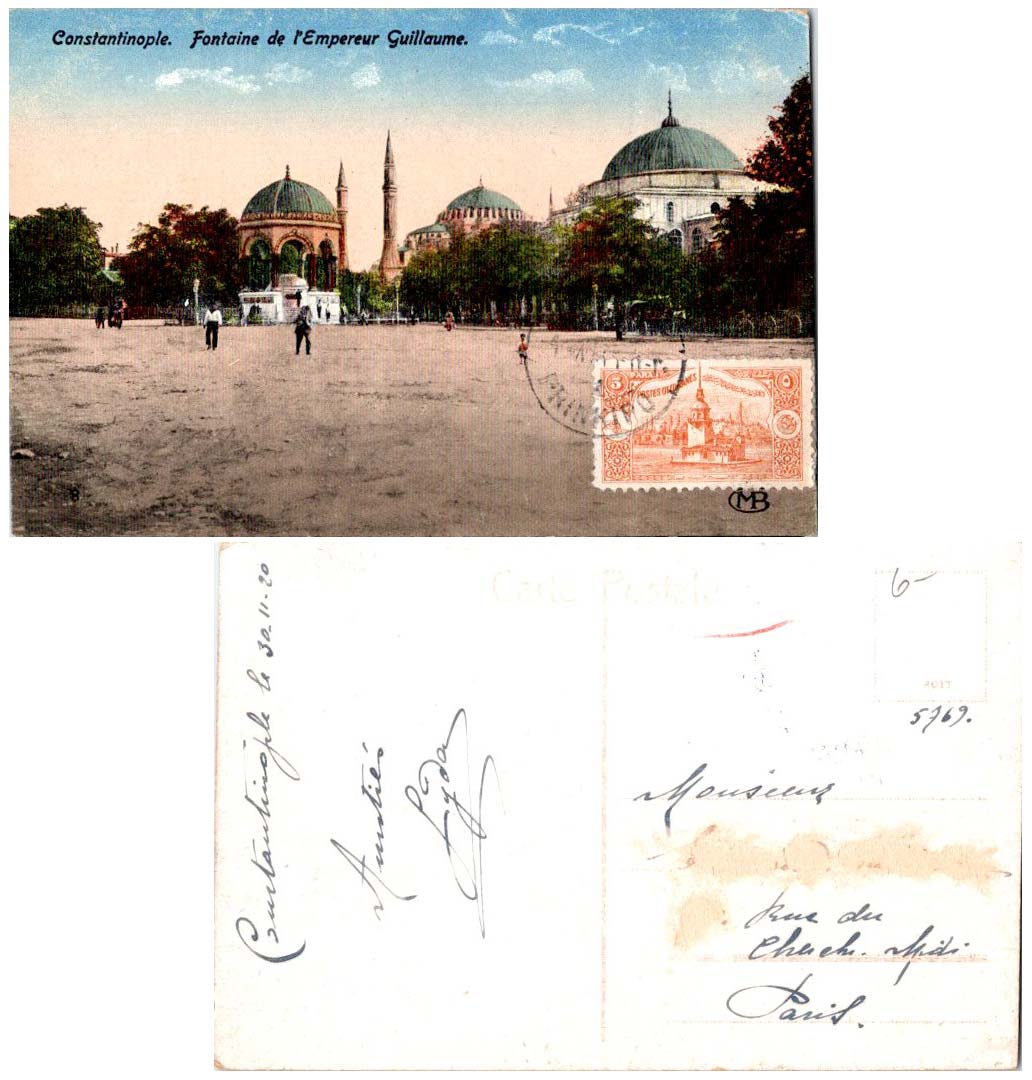 Constantinople. Fontaine de l'Empereur Guillaume.
PRINKIPO
5 PARA ٥
POSTES OTTOMANES
8
MB
Carte Postale
6-
5769.
Constantinople le 30-11-20
Amitiés
Monsieur
Rue du
Cherche-Midi
Paris.